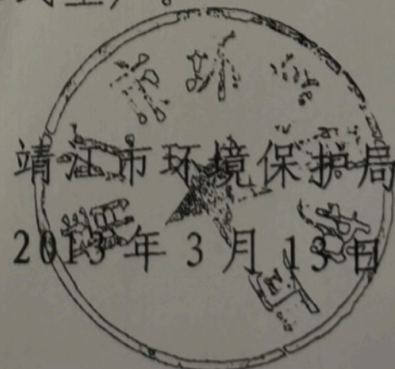 靖江市环境保护局
2013年3月13日